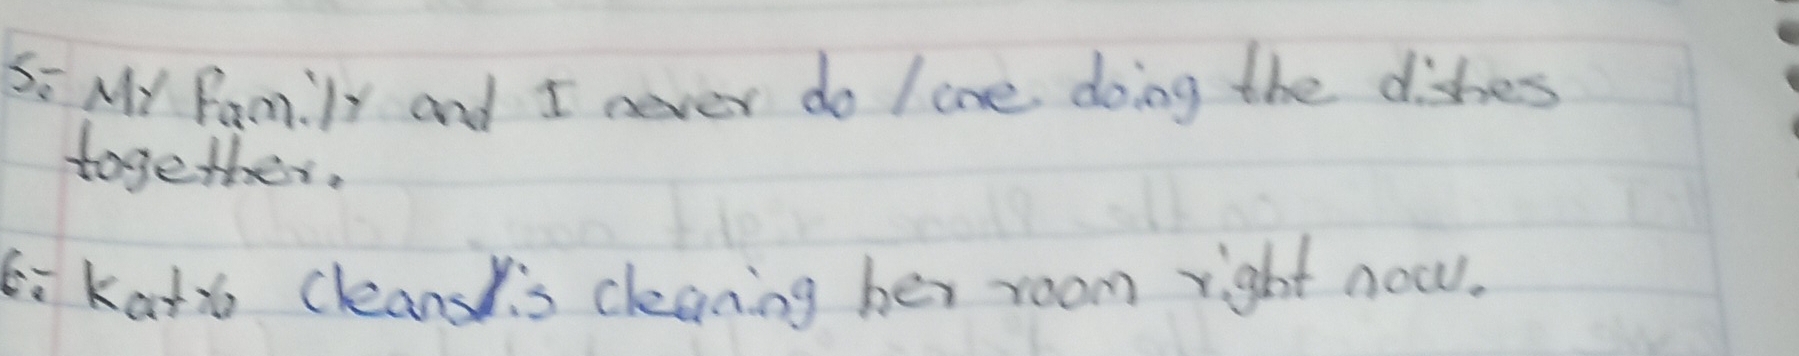 5:- My family and I never do / are doing the dishes
together.
6:- Katia cleans / is cleaning her room right now.